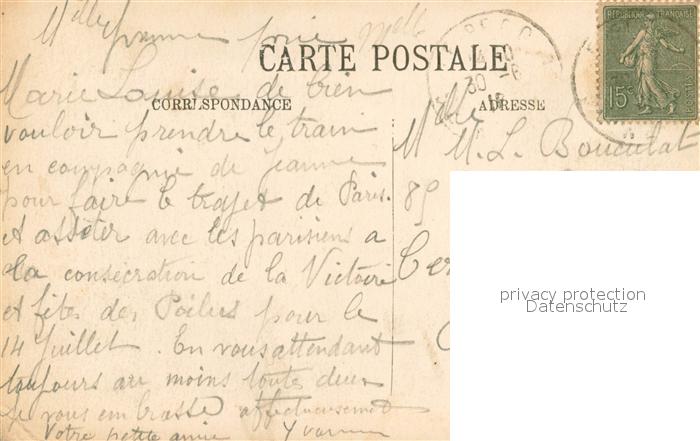 Mlle Yvonne prie Melle
CARTE POSTALE
Marie Louise de bien
CORRESPONDANCE
ADRESSE
vouloir prendre le train
en compagnie de Jeanne
pour faire le trajet de Paris.
et assister avec les parisiens a
la consécration de la Victoire
et fêtes des Poilus pour le
14 Juillet. En vous attendant
toujours au moins toutes deux
Je vous embrasse affectueusement
Votre petite amie Yvonne
Mlle
M. L. Boucutat
85
REPUBLIQUE FRANCAISE
15c
30 -6
privacy protection
Datenschutz